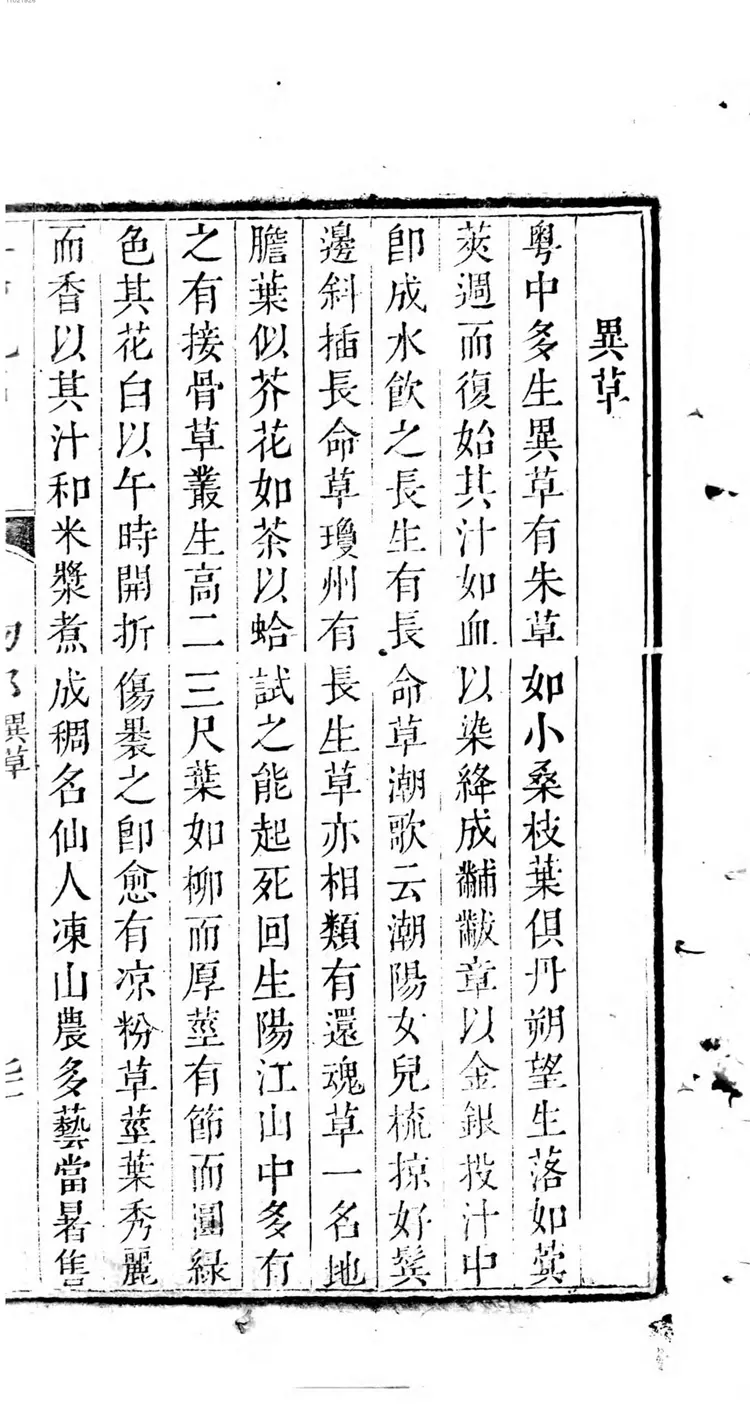 異草
粵中多生異草有朱草如小桑枝葉俱丹朔望生落如蓂
莢週而復始其汁如血以染絳成黼黻章以金銀投汁中
卽成水飮之長生有長命草潮歌云潮陽女兒梳掠好鬓
邊斜插長命草瓊州有長生草亦相類有還魂草一名地
膽葉似芥花如茶以蛤試之能起死回生陽江山中多有
之有接骨草叢生高二三尺葉如柳而厚莖有節而圓綠
色其花白以午時開折傷㬥之卽愈有凉粉草莖葉秀麗
而香以其汁和米漿煮成稠名仙人凍山農多藝當暑售
異草